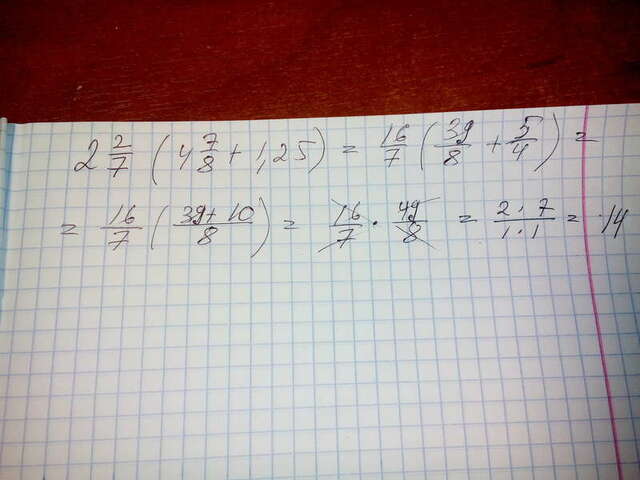 2 2/7 (4 7/8 + 1,25) = 16/7 (39/8 + 5/4) =
= 16/7 (39+10/8) = 16/7 · 49/8 = 2·7/1·1 = 14